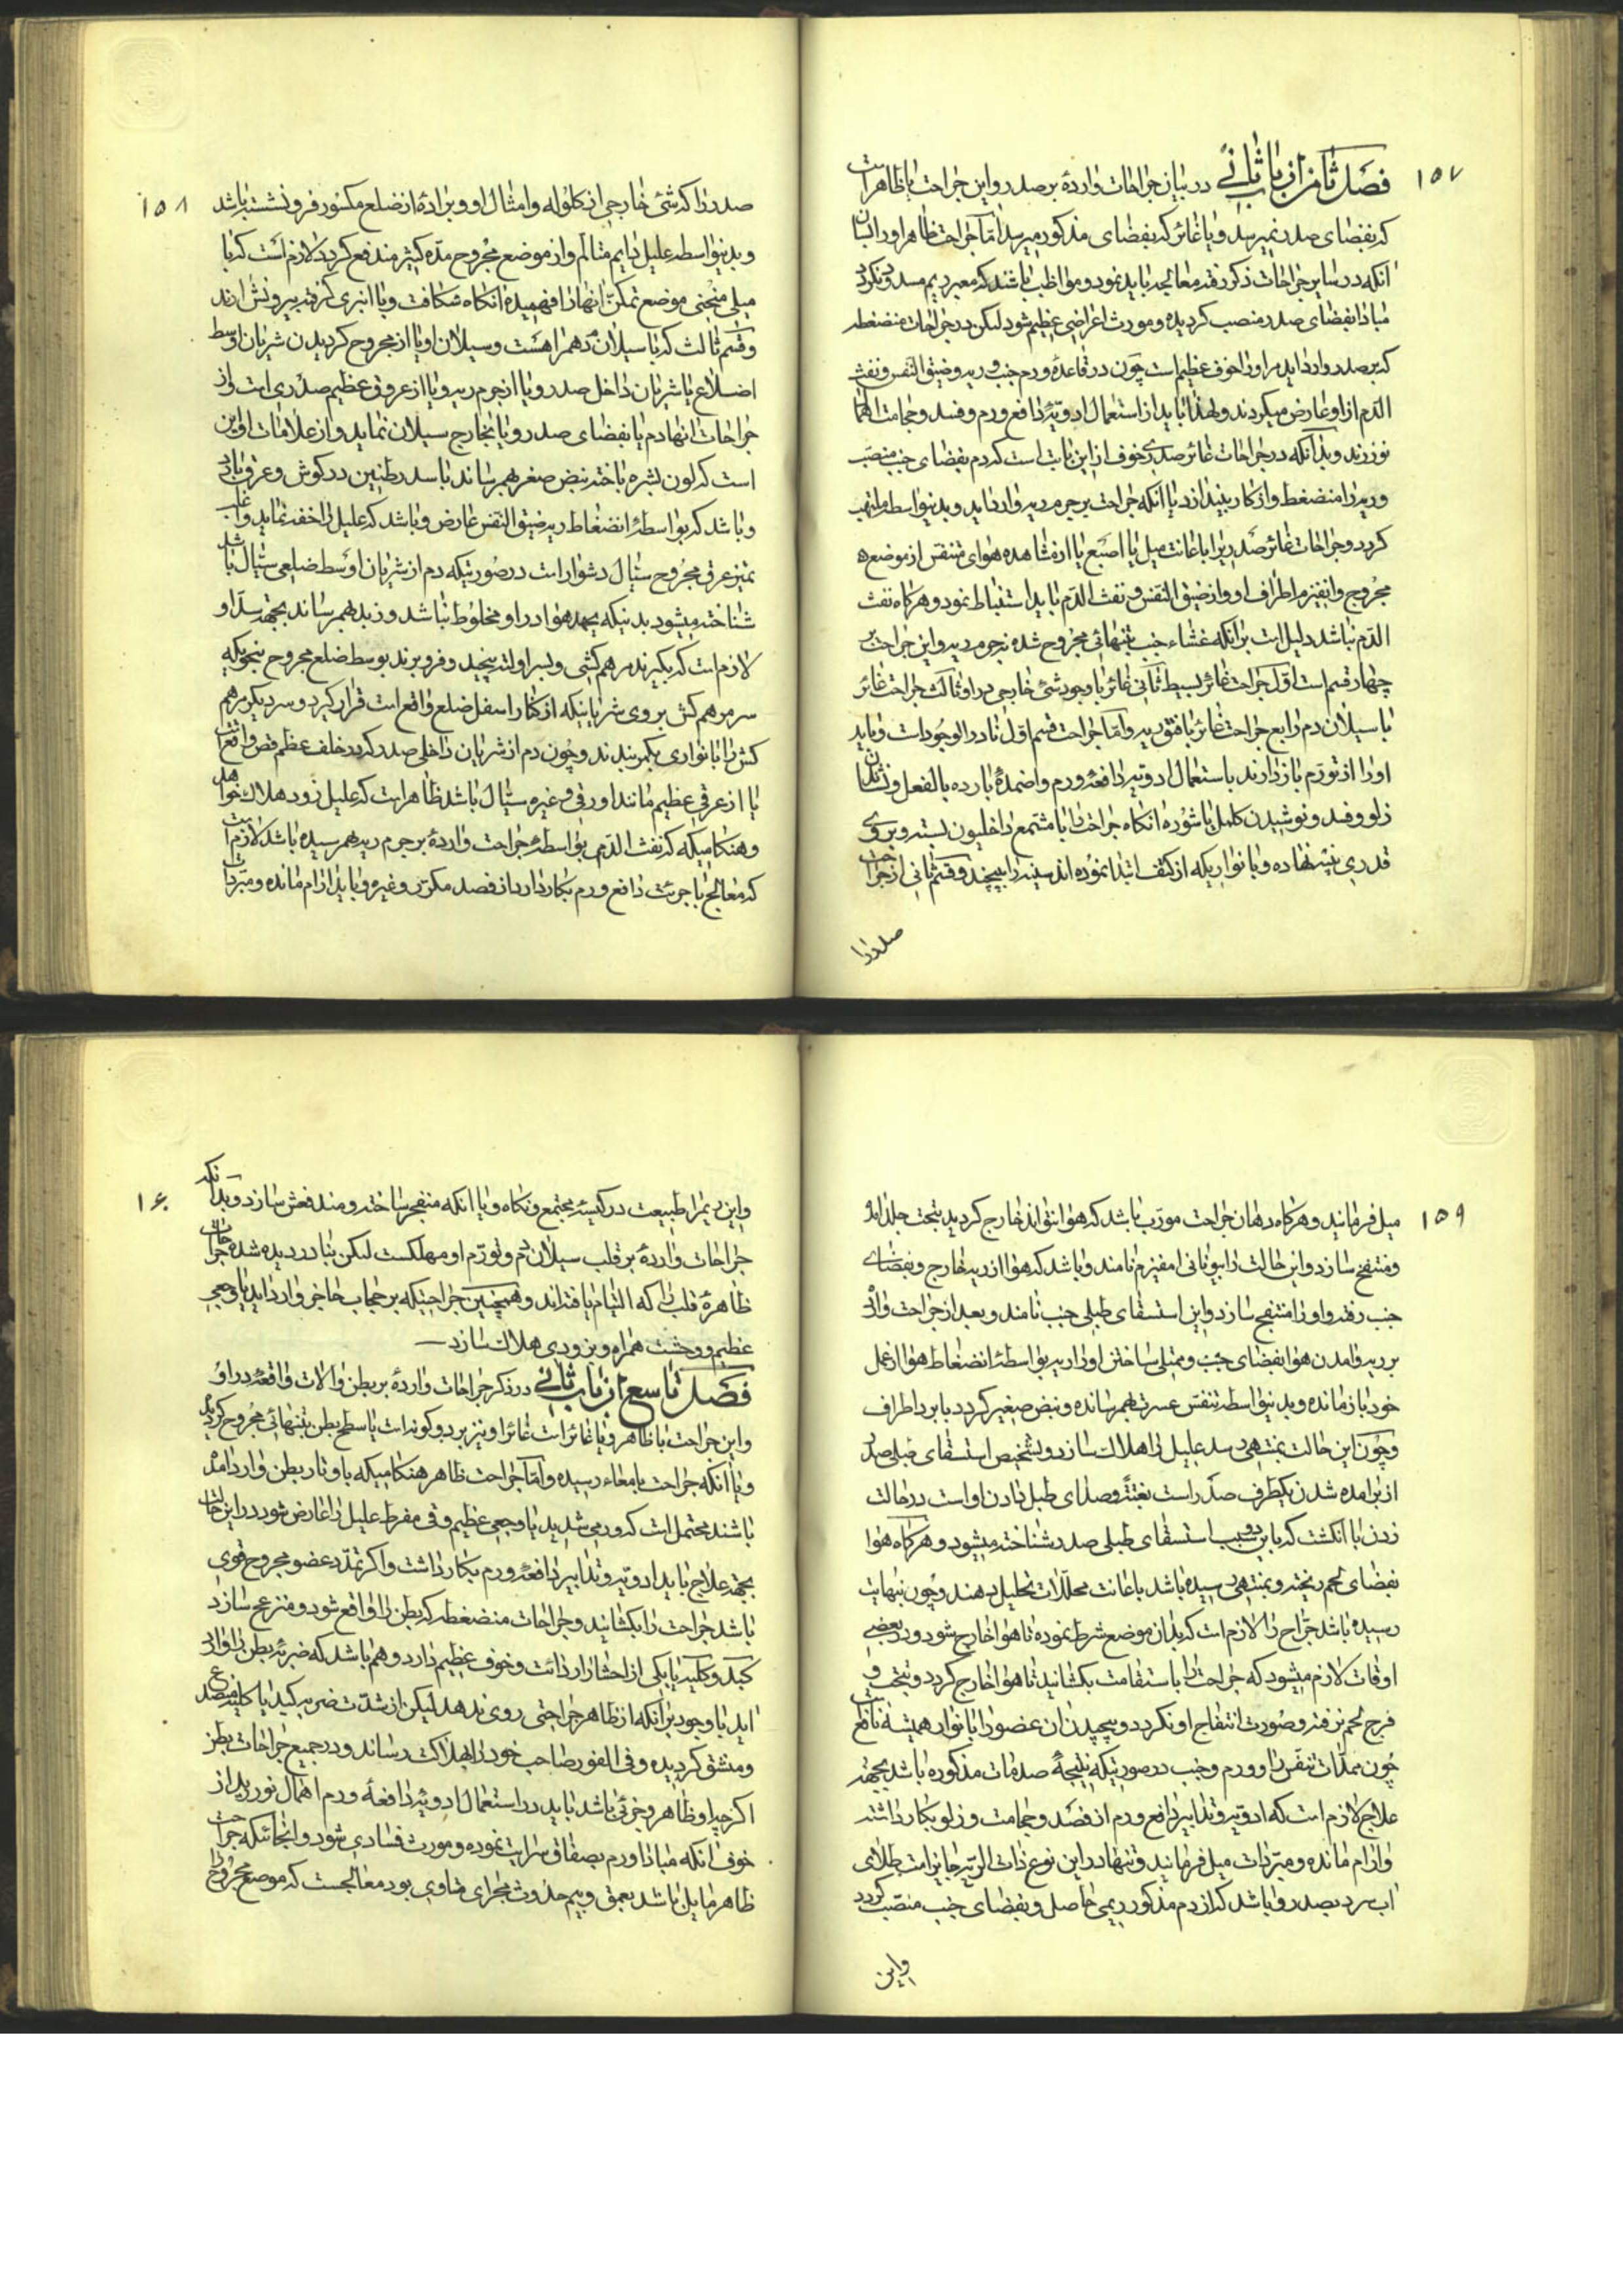 ۱۵۷
فصل ثامن از باب ثانی در بیان جراحات وارده بر صدر و این جراحت یا ظاهر است
که بفضای صدر نمیرسد و یا غائر که بفضای مذکور میرسد اما جراحت ظاهر او را بسان
آنکه در سایر جراحات ذکر رفته معالجه باید نمود و مواظب باشند که معبر ریم مسدود نکردد
مبادا بفضای صدر منصب کردیده و مورث اعراضی عظیم شود لیکن در جراحات منضغطه
که بر صدر وارد اید مر او را خوف عظیم است چون در قاعده ورم جنب و ریه و ضیق النفس و نفث
الدم از او عارض میکردند و لهذا باید از استعمال ادویهٔ دافع ورم و فصد و حجامت اهمال
نورزند و بدانکه در جراحات غائر صدری خوف از این بابت است که دم بفضای جنب منصب
و ریه را منضغط و از کار بیندازد یا آنکه جراحت بر جرم ریه وارد اید و بدینواسطه ملتهب
کردد و جراحات غائر صدریرا باعانت میل یا اصبع یا از مشاهده هوای متنفس از موضع
مجروح و انفیزم اطراف او و از ضیق النفس و نفث الدم باید استنباط نمود و هرکاه نفث
الدم نباشد دلیل است بر آنکه غشاء جنب بتنهائی مجروح شده نه جرم ریه و این جراحت بر
چهار قسم است اول جراحت غائر بسیط ثانی غائر با وجود شئ خارجی در او ثالث جراحت غائر
با سیلان دم رابع جراحت غائر با فتق ریه و اما جراحت قسم اول نادر الوجود است و باید
او را از تورم باز دارند باستعمال ادویه دافعهٔ ورم و اضمدهٔ بارده بالفعل و نشاندن
زلو و فصد و نوشیدن کلمل با شوره انکاه جراحت را با مشمع داخلیون بسته و بر وی
قدری پنبه نهاده و با نواریکه از کتف ابتدا نموده اند سینه را بپیچند و قسم ثانی از جراحت
صدر را
۱۵۸
صدر را که شئ خارجی از کلوله و امثال او و برادهٔ از ضلع مکسور فرو نشسته باشد
و بدینواسطه علیل دایم متالم و از موضع مجروح مده کثیر مندفع کردد لازم است که با
میلی منحنی موضع تمکن انها را فهمیده انکاه شکافت و با انبری کرفته بیرونش ارند
و قسم ثالث که با سیلان دم همراهست و سیلان او یا از مجروح کردیدن شریان اوسط
اضلاع یا شریان داخل صدر و یا از جرم ریه و یا از عروق عظیم صدری است و از
جراحات انها دم یا بفضای صدر و یا بخارج سیلان نماید و از علامات او این
است که لون بشره باخته نبض صغر بهم رساند با سدر طنین در کوش و عرق بارد
و باشد که بواسطهٔ انضغاط ریه ضیق النفس عارض و باشد که علیل را خفه نماید و غالب
تمیز عرق مجروح سیّال دشوار است در صورتیکه دم از شریان اوسط ضلعی سیّال باشد
شناخته میشود بدینکه بجهد هوا در او مخلوط نباشد و زبد بهم رساند بجهت سد او
لازم است که بکیرند مرهم کشی و بسر او لته پیچید و فرو برند بوسط ضلع مجروح بنحویکه
سر مرهم کش بر وی شریانیکه از کنار اسفل ضلع واقع است قرار کیرد و سر دیکر مرهم
کش را با نواری بکمر بندند و چون دم از شریان داخلی صدر که در خلف عظم قص واقع است
یا از عرقی عظیم مانند اورقی و غیره سیّال باشد ظاهر است که علیل زود هلاک خواهد
و هنکامیکه که نفث الدم بواسطهٔ جراحت واردهٔ بر جرم ریه بهم رسیده باشد لازم است
که معالج با جرئت دافع ورم بکار دارد از فصد مکرر و غیره و باید ارام مانده و مبردات
۱۵۹
میل فرمایند و هرکاه دهان جراحت مورب باشد که هوا نتواند خارج کردید بتحت جلد امده
و منتفخ سازد و این حالت را بیونانی امفیزم نامند و باشد که هوا از ریه خارج و بفضای
جنب رفته و او را منتفخ سازد و این استسقای طبلی جنب نامند و بعد از جراحت وارد
بر ریه و امدن هوا بفضای جنب و ممتلی ساختن او را ریه بواسطهٔ انضغاط هوا از عمل
خود باز مانده و بدینواسطه تنفس عسرت بهم رسانده و نبض صغیر کردد با برد اطراف
و چون این حالت بمنتهی رسد علیل را هلاک سازد و تشخیص استسقای طبلی صدر
از بر امده شدن یکطرف صدر است بغتةً و صدای طبل دادن او است در حالت
زدن با انکشت که باین دو سبب استسقای طبلی صدر شناخته میشود و هرکاه هوا
بفضای لحم ریخته و بمنتهی رسیده باشد باعانت محللات تحلیل دهند و چون بنهایت
رسیده باشد جراح را لازم است که بدان موضع شرط نموده تا هوا خارج شود و در بعضی
اوقات لازم میشود که جراحت را باستقامت بکشانید تا هوا خارج کردد و بتحت و
فرج لحم نرفته و صورت انتفاخ او نکردد و پیچیدن ان عضو را با نوار همیشه نافع است
چون ممدات تنفس را و ورم و جنب در صورتیکه نتیجهٔ صدمات مذکوره باشد بجهت
علاج لازم است که ادویه و تدابیر دافع ورم از فصد و حجامت و زلو بکار داشته
و ارام مانده و مبردات میل فرمایند و تنها در این نوع ذات الریه جایز است طلای
اب سرد بصدر و باشد که از دم مذکور ریمی حاصل و بفضای جنب منصب کردد
و این
۱۶۰
و این ریم را طبیعت در کیسهٔ مجتمع و نکاه و یا انکه منفجر ساخته و مندفعش سازد و بدانکه
جراحات واردهٔ بر قلب سیلان دم و تورم او مهلکست لیکن بنادر دیده شده جراحات
ظاهرهٔ قلب را که التیام یافته اند و همچنین جراحتیکه بر حجاب حاجز وارد اید با وجعی
عظیم و وحشت همراه و بزودی هلاک سازد
فصل تاسع از باب ثانی در ذکر جراحات واردهٔ بر بطن و الات واقعهٔ در او
و این جراحت یا ظاهر و یا غائر است غائر او نیز بر دو کونه است یا سطح بطن بتنهائی مجروح کردیده
و یا آنکه جراحت بامعاء رسیده و اما جراحت ظاهر هنکامیکه باوتار بطن وارد امده
باشند محتمل است که ورمی شدید با وجعی عظیم و قی مفرط علیل را عارض شود در این حالت
بجهت علاج باید ادویه و تدابیر دافعهٔ ورم بکار داشت و اکر تمدد عضو مجروح قوی
باشد جراحت را بکشانید و جراحات منضغطه که بطن را واقع شود و منزعج سازد
کبد و کلیه یا یکی از احشا را ردائت و خوف عظیم دارد و هم باشد که ضربهٔ بطن را وارد
اید با وجود بر آنکه از ظاهر جراحتی روی ندهد لیکن از شدت ضربه کبد یا کلیه منصدع
و منشق کردیده و فی الفور صاحب خود را بهلاکت رساند و در جمیع جراحات بطن
اکر چه او ظاهر و جزئی باشد باید در استعمال ادویهٔ دافعهٔ ورم اهمال نورزید از
خوف انکه مبادا ورم بصفاق سرایت نموده و مورث فسادی شود و انجائیکه جراحت
ظاهر مایل باشد بعمق و بیم حدوث مجرای مساوی بود معالجست که موضع مجروح را